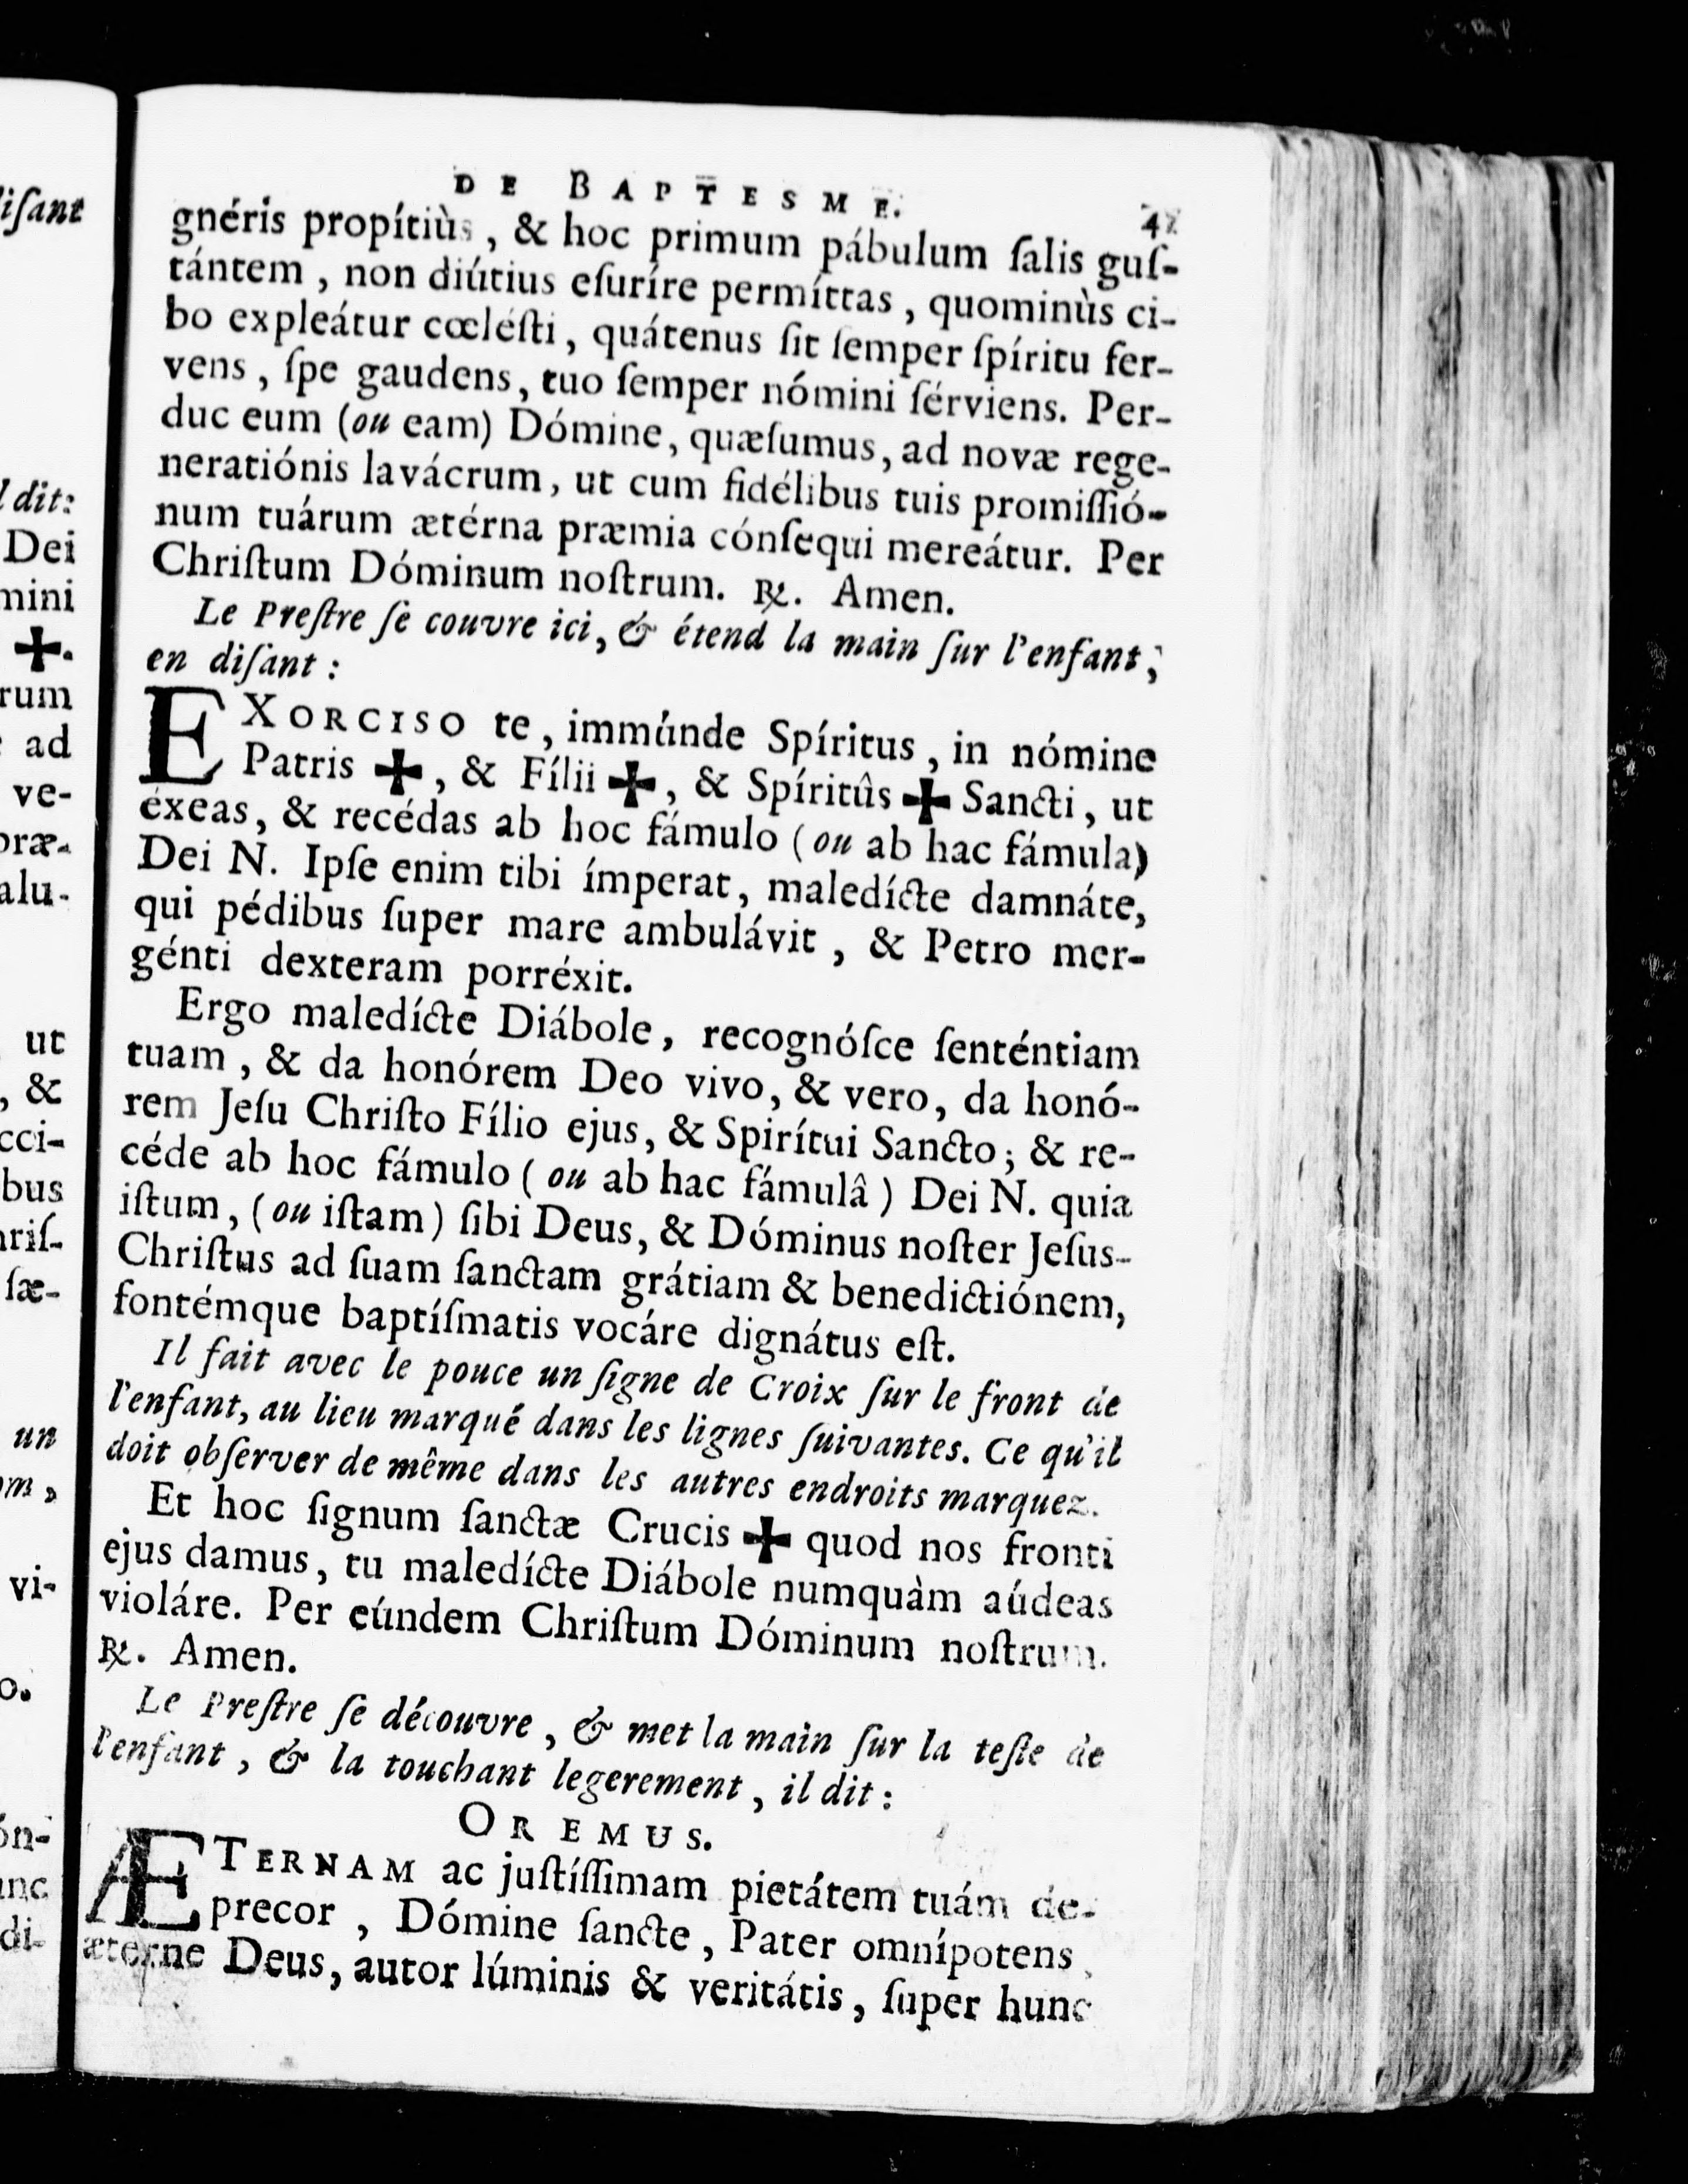 DE BAPTESME.
gnéris propítiùs, & hoc primum pábulum ſalis guſ-
tántem, non diútius eſuríre permíttas, quominùs ci-
bo expleátur cœléſti, quátenus ſit ſemper ſpíritu fer-
vens, ſpe gaudens, tuo ſemper nómini ſérviens. Per-
duc eum (ou eam) Dómine, quæſumus, ad novæ rege-
neratiónis lavácrum, ut cum fidélibus tuis promiſſió-
num tuárum ætérna præmia cónſequi mereátur. Per
Chriſtum Dóminum noſtrum. ℟. Amen.
Le Preſtre ſe couvre ici, & étend la main ſur l'enfant,
en diſant :
EXORCISO te, immúnde Spíritus, in nómine
Patris ✠, & Fílii ✠, & Spíritûs ✠ Sancti, ut
éxeas, & recédas ab hoc fámulo (ou ab hac fámula)
Dei N. Ipſe enim tibi ímperat, maledícte damnáte,
qui pédibus ſuper mare ambulávit, & Petro mer-
génti dexteram porréxit.
Ergo maledícte Diábole, recognóſce ſenténtiam
tuam, & da honórem Deo vivo, & vero, da honó-
rem Jeſu Chriſto Fílio ejus, & Spirítui Sancto; & re-
céde ab hoc fámulo (ou ab hac fámulâ) Dei N. quia
iſtum, (ou iſtam) ſibi Deus, & Dóminus noſter Jeſus-
Chriſtus ad ſuam ſanctam grátiam & benedictiónem,
fontémque baptíſmatis vocáre dignátus eſt.
Il fait avec le pouce un ſigne de Croix ſur le front de
l'enfant, au lieu marqué dans les lignes ſuivantes. Ce qu'il
doit obſerver de même dans les autres endroits marquez.
Et hoc ſignum ſanctæ Crucis ✠ quod nos fronti
ejus damus, tu maledícte Diábole numquàm aúdeas
violáre. Per eúndem Chriſtum Dóminum noſtrum.
℟. Amen.
Le Preſtre ſe découvre, & met la main ſur la teſte de
l'enfant, & la touchant legerement, il dit :
OREMUS.
ÆTERNAM ac juſtíſſimam pietátem tuám de-
precor, Dómine ſancte, Pater omnípotens,
æterne Deus, autor lúminis & veritátis, ſuper hunc